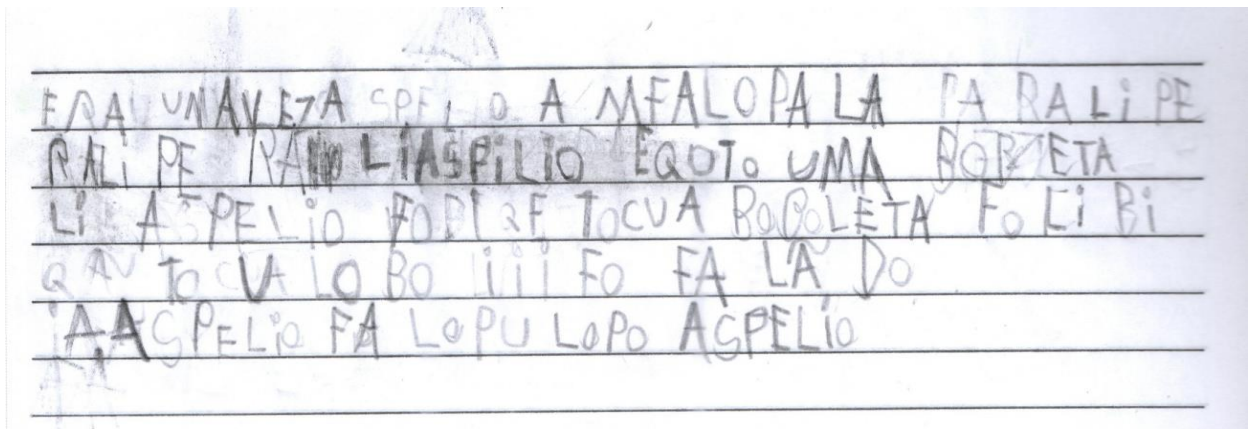 ERA UNAVEZA SPELIO A MFALOPA LA PA RALIPE
RALIPE RA LIASPILIO EQOTO UMA BOBZETA
LI ASPELIO FODIQE TOCUA BOBOLETA FO LIBI
QAV TO CUA LOBO IIII FO FA LA DO
AASPELIO FA LOPU LOPO ASPELIO